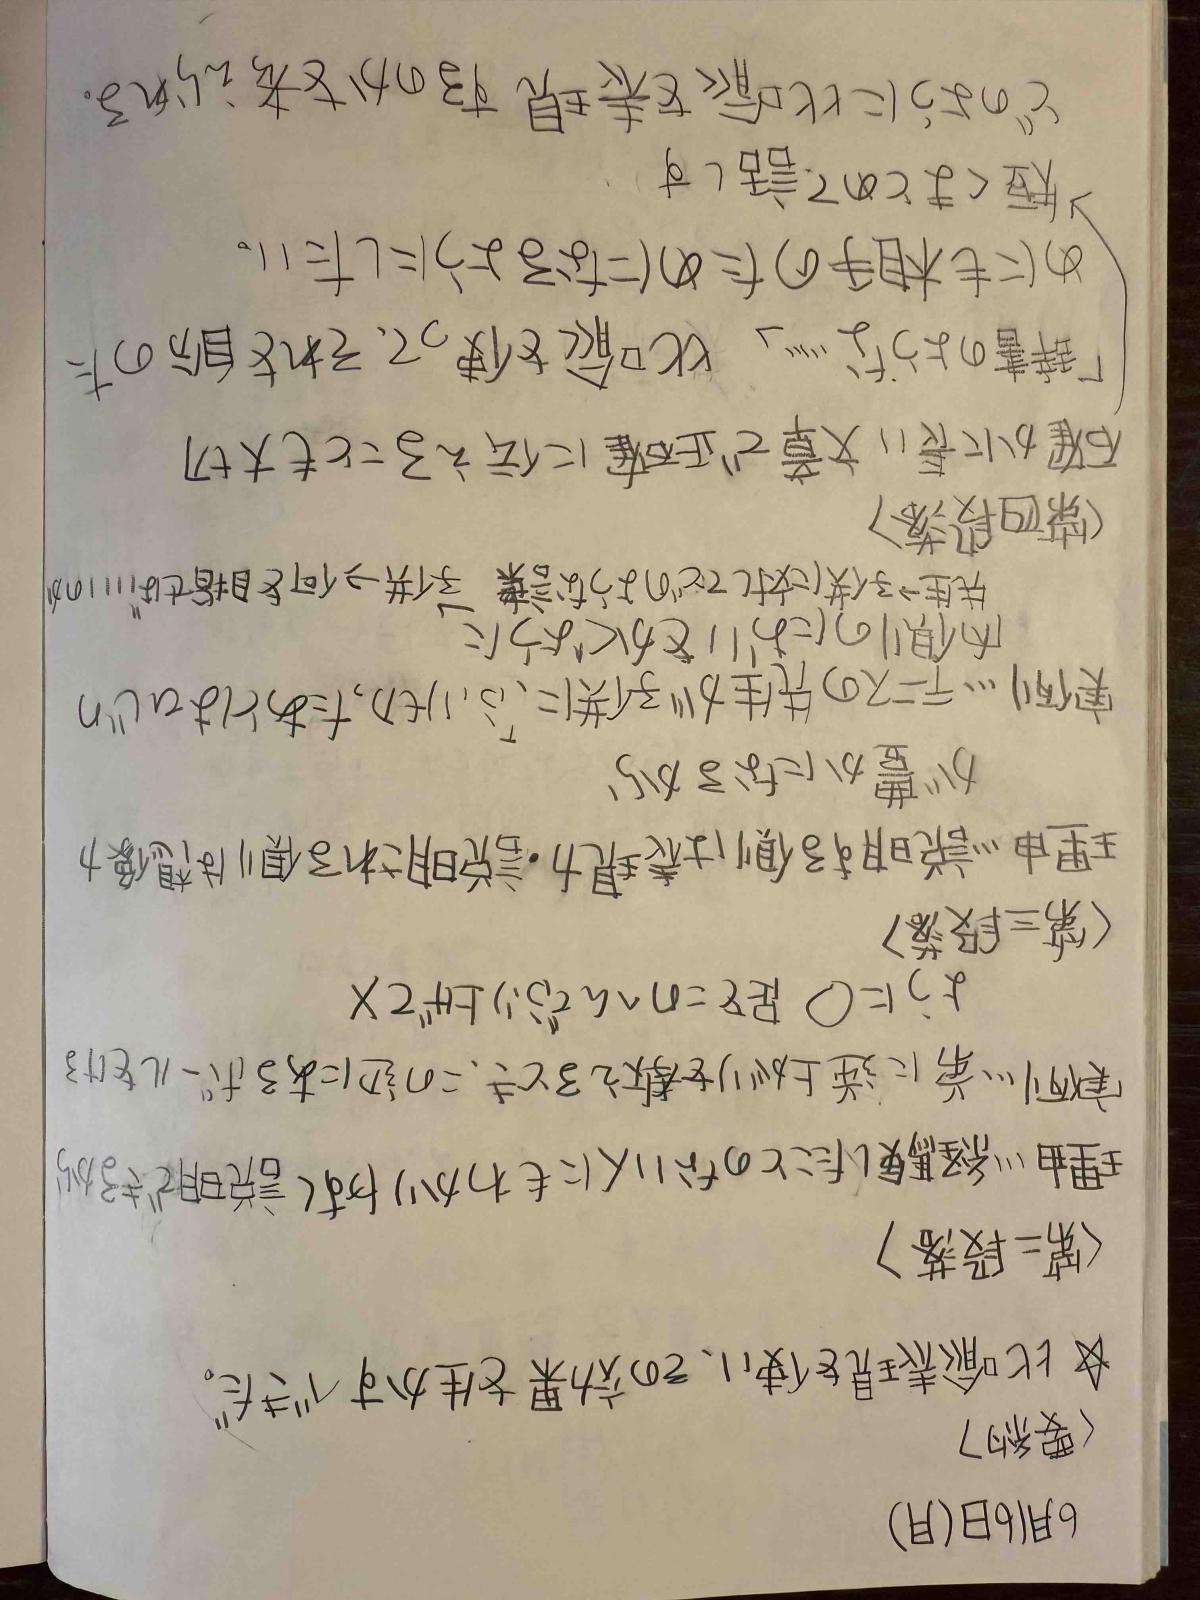 6月16日(月)
〈要約〉
☆比喩表現を使い、その効果を生かすべきだ。
〈第二段落〉
理由…経験したことのない人にもわかりやすく説明できるから
実例…弟に逆上がりを教えるとき、この辺にあるボールをける
ように○ 足をこのへんでふり上げて×
〈第三段落〉
理由…説明する側は表現力・説明される側は想像力
が豊かになるから
実例…テニスの先生が子供に、「ふりむいたあとはひじの
内側のにおいをかぐように」
先生→子供に対してどのような言葉 子供→何を目指せばいいのか
〈第四段落〉
確かに長い文章で正確に伝えることも大切
「辞書のような……」 比喩を使って、それを自分のた
めにも相手のためになるようにしたい。
短くまとめて話す
どのように比喩を表現するのかを考えられる。